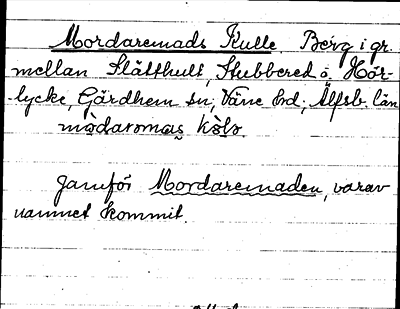 Mordaremads Kulle. Berg i gr.
mellan Slätthult, Stubbered o. Hör-
lycke, Gärdhem sn, Väne hd; Älfsb. län
mòdaromas kòlo
Jamför Mordaremaden, varav
namnet kommit.